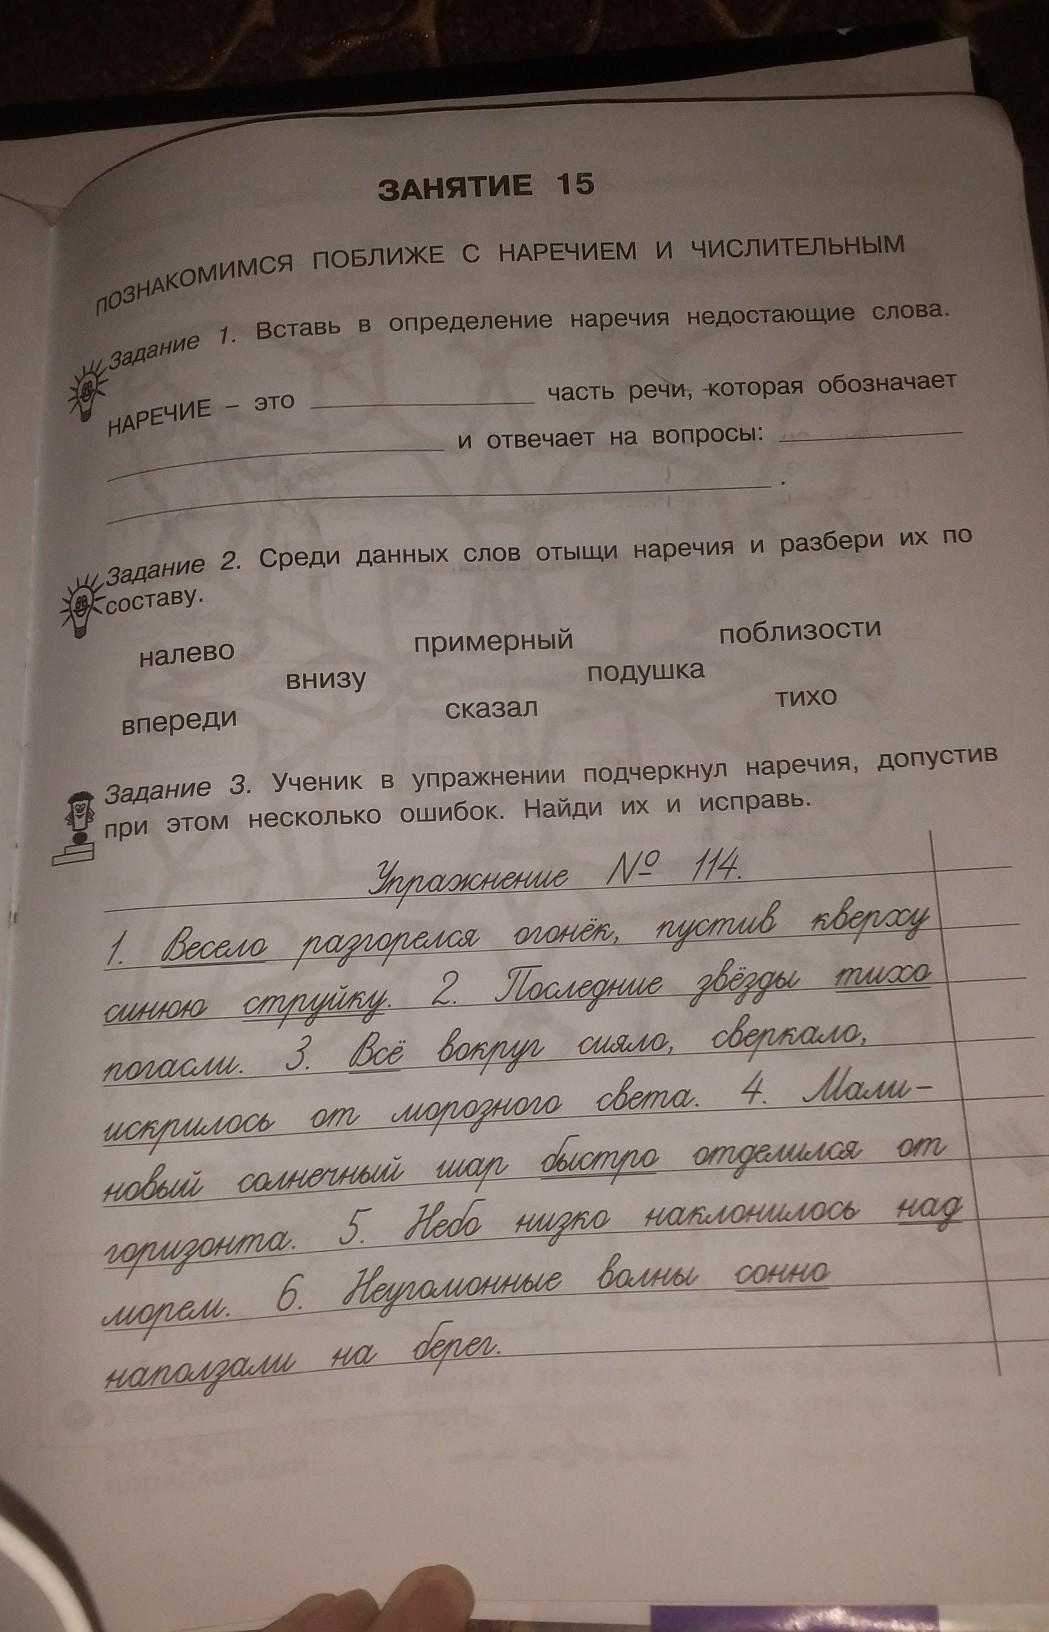 ЗАНЯТИЕ 15
ПОЗНАКОМИМСЯ ПОБЛИЖЕ С НАРЕЧИЕМ И ЧИСЛИТЕЛЬНЫМ
Задание 1. Вставь в определение наречия недостающие слова.
НАРЕЧИЕ – это ____________ часть речи, которая обозначает
____________ и отвечает на вопросы: ____________
____________.
Задание 2. Среди данных слов отыщи наречия и разбери их по
составу.
налево примерный поблизости
внизу подушка
впереди сказал тихо
Задание 3. Ученик в упражнении подчеркнул наречия, допустив
при этом несколько ошибок. Найди их и исправь.
Упражнение № 114.
1. Весело разгорелся огонёк, пустив кверху
синюю струйку. 2. Последние звёзды тихо
погасли. 3. Всё вокруг сияло, сверкало,
искрилось от морозного света. 4. Мали-
новый солнечный шар быстро отделился от
горизонта. 5. Небо низко наклонилось над
морем. 6. Неугомонные волны сонно
наползали на берег.